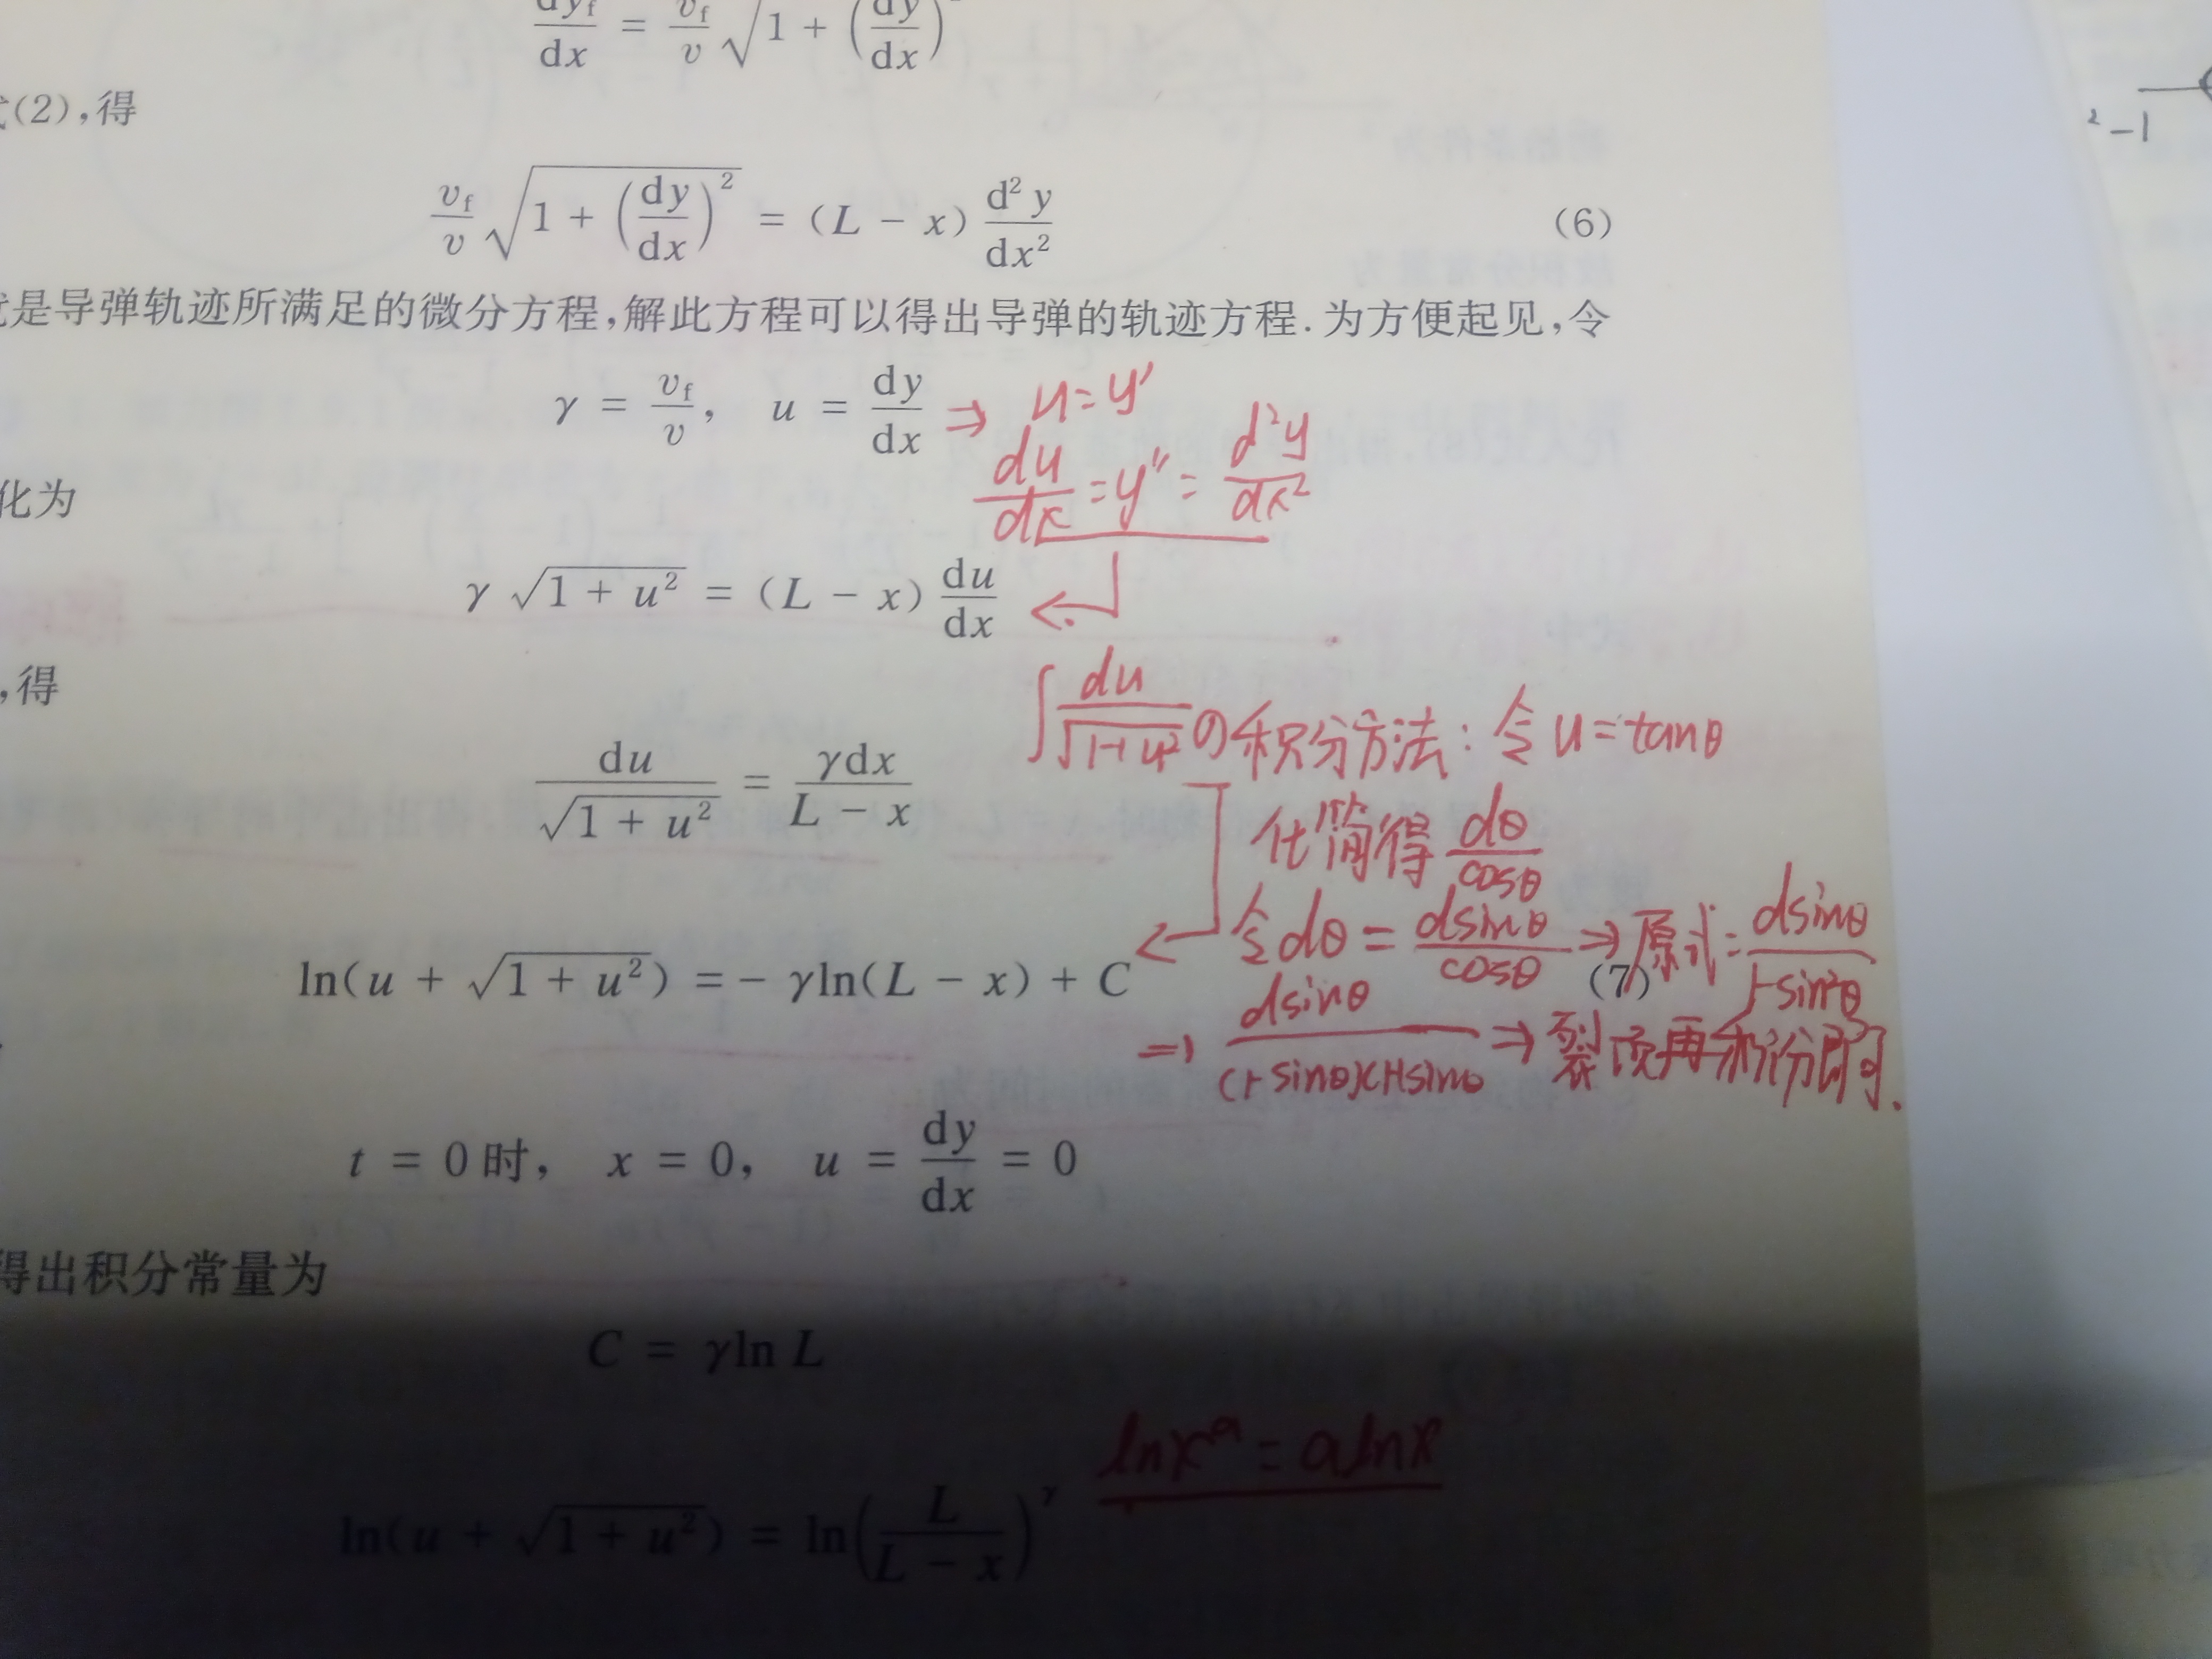 dy_f/dx = v_f/v √(1 + (dy/dx)
(2),得
v_f/v √(1 + (dy/dx)²) = (L − x) d²y/dx² (6)
是导弹轨迹所满足的微分方程,解此方程可以得出导弹的轨迹方程.为方便起见,令
γ = v_f/v, u = dy/dx ⇒ u=y'
du/dx = y'' = d²y/dx²
化为
γ √(1 + u²) = (L − x) du/dx
,得
∫ du/√(1+u²) の积分方法:令u=tanθ
du/√(1 + u²) = γdx/(L − x)
化简得 dθ/cosθ
令dθ = dsinθ/cosθ ⇒ 原式= dsinθ/(1-sin²θ)
ln(u + √(1 + u²)) = − γln(L − x) + C (7)
⇒ dsinθ/((1-sinθ)(1+sinθ)) ⇒ 裂项再积分即可.
t = 0 时, x = 0, u = dy/dx = 0
得出积分常量为
C = γln L
lnxᵃ = alnx
ln(u + √(1 + u²)) = ln(L/(L − x))^γ
² −1